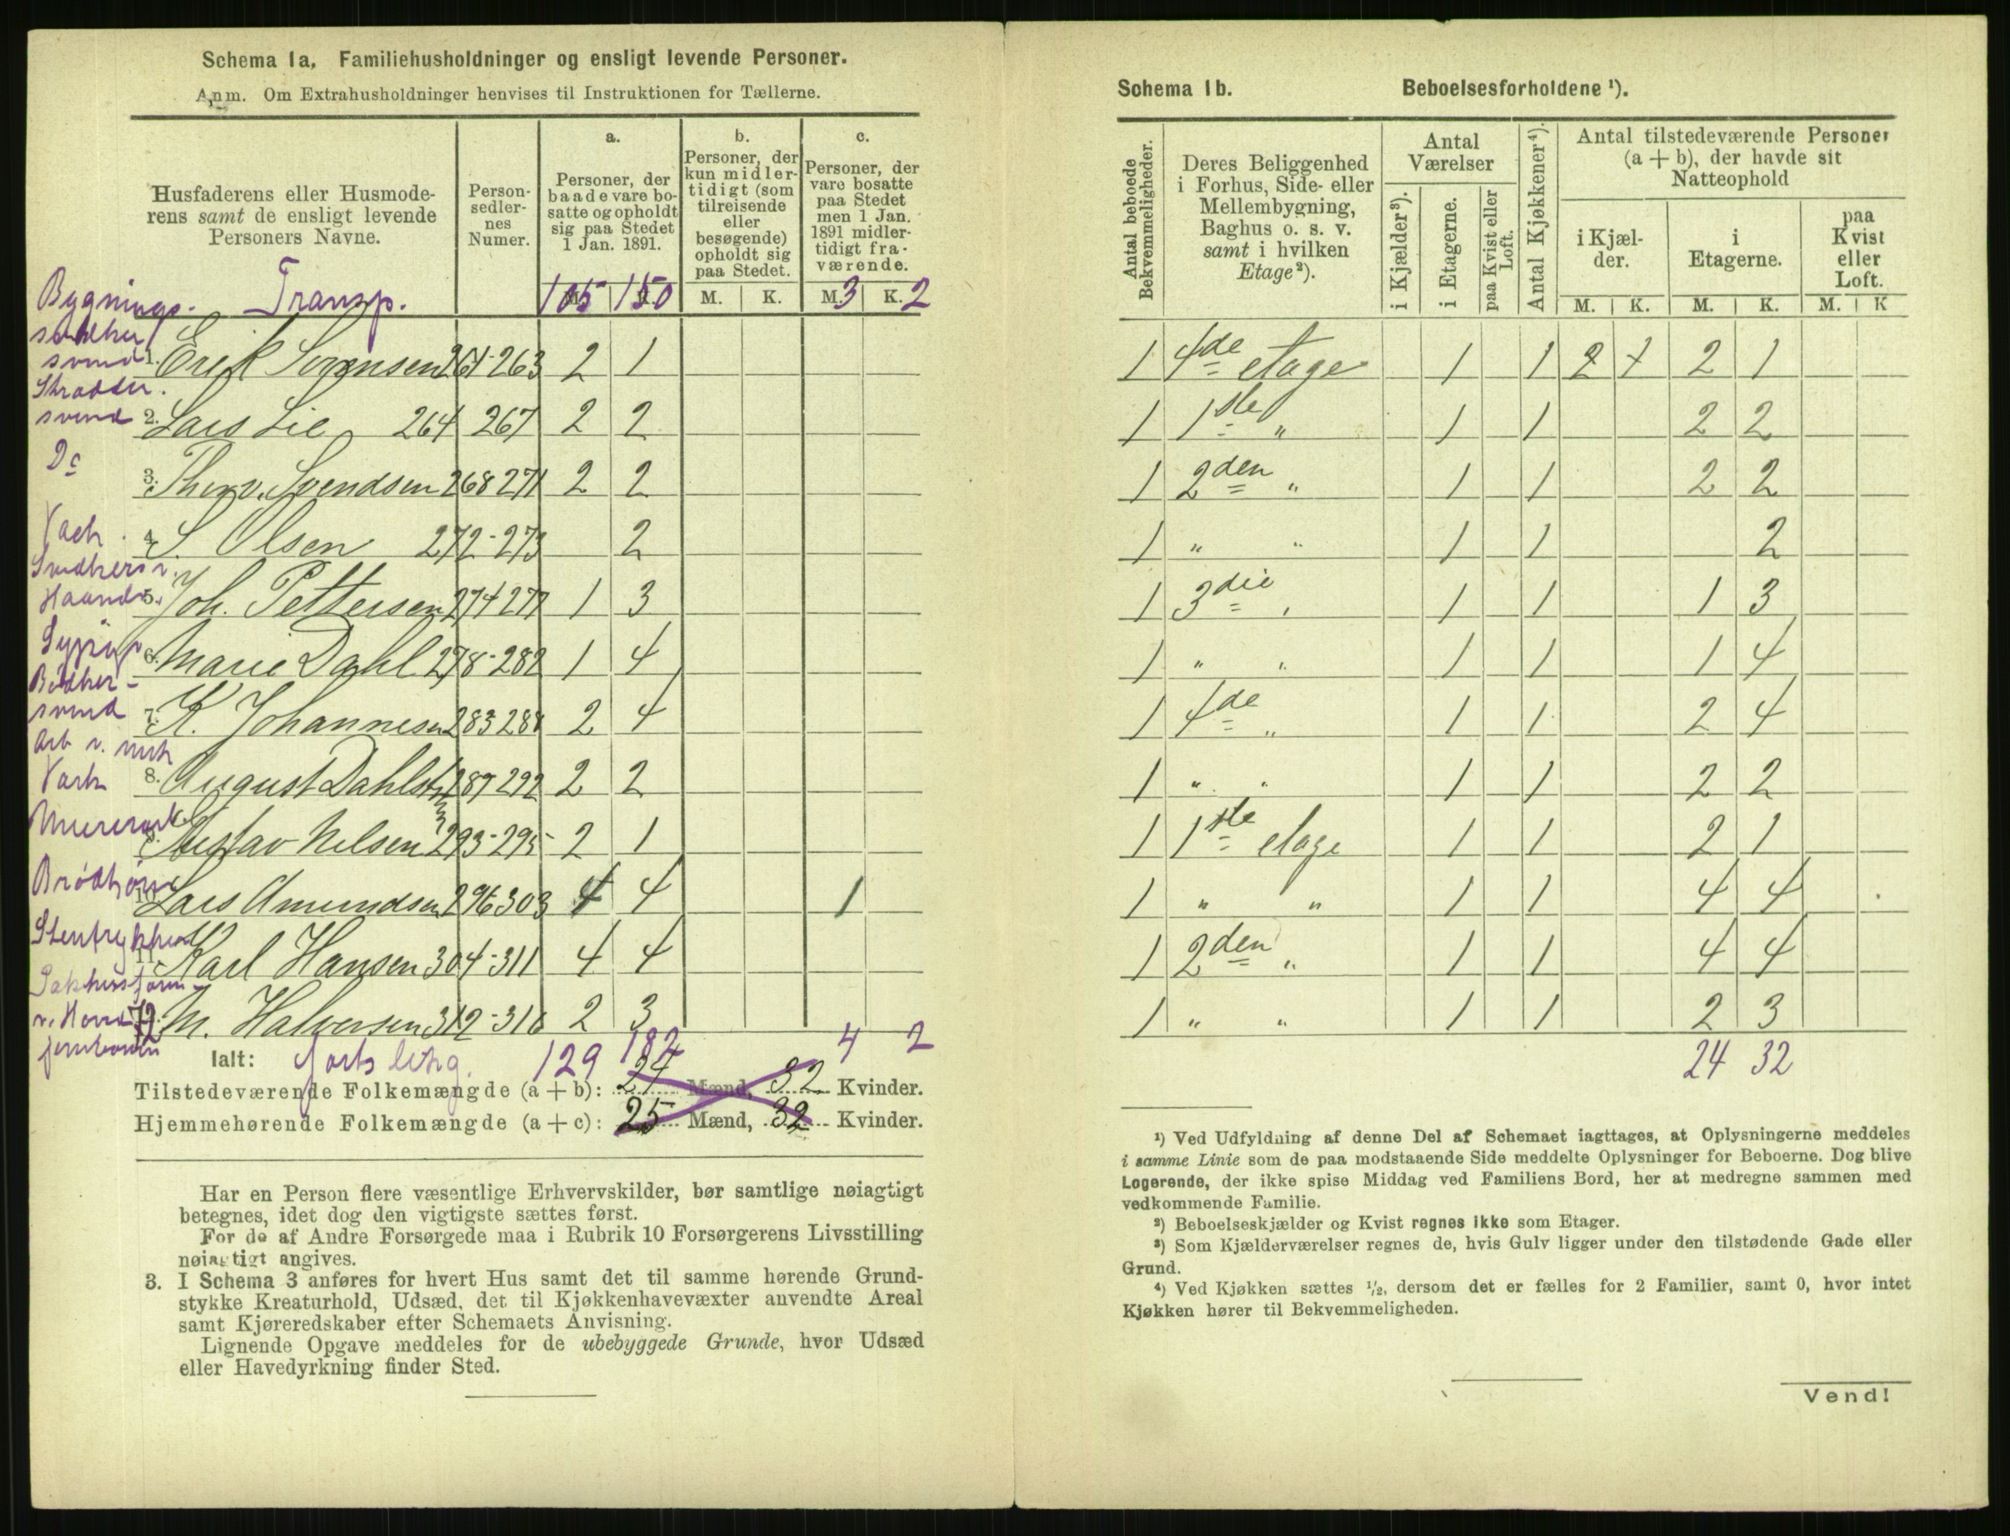 Schema 1a. Familiehusholdninger og ensligt levende Personer.
Anm. Om Extrahusholdninger henvises til Instruktionen for Tællerne.
Husfaderens eller Husmoderens samt de ensligt levende Personers Navne.
Personsedlernes Numer.
a. Personer, der baade vare bosatte og opholdt sig paa Stedet 1 Jan. 1891.
b. Personer, der kun midlertidigt (som tilreisende eller besøgende) opholdt sig paa Stedet.
c. Personer, der vare bosatte paa Stedet men 1 Jan. 1891 midlertidigt fraværende.
M. K. M. K. M. K.
Transp. 105 150 3 2
1. Erik Sørensen 261-263 2 1
2. Lars Lie 264 267 2 2
3. Thorv. Svendsen 268 271 2 2
4. S. Olsen 272-273 2
5. Joh. Pettersen 274 277 1 3
6. Marie Dahl 278-282 1 4
7. K. Johannesen 283 288 2 4
8. August Dahlst 289 292 2 2
9. Gustav Nilsen 293-295 2 1
10. Lars Amundsen 296 303 4 4 1
11. Karl Hansen 304-311 4 4
12. M. Halversen 312-316 2 3
Ialt: 129 182 4 2
Tilstedeværende Folkemængde (a + b): 24 Mænd, 32 Kvinder.
Hjemmehørende Folkemængde (a + c): 25 Mænd, 32 Kvinder.
Har en Person flere væsentlige Erhvervskilder, bør samtlige nøiagtigt
betegnes, idet dog den vigtigste sættes først.
For de af Andre Forsørgede maa i Rubrik 10 Forsørgerens Livsstilling
nøiagtigt angives.
3. I Schema 3 anføres for hvert Hus samt det til samme hørende Grund-
stykke Kreaturhold, Udsæd, det til Kjøkkenhavevæxter anvendte Areal
samt Kjøreredskaber efter Schemaets Anvisning.
Lignende Opgave meddeles for de ubebyggede Grunde, hvor Udsæd
eller Havedyrkning finder Sted.
Schema 1b. Beboelsesforholdene ¹).
Antal beboede Bekvemmeligheder.
Deres Beliggenhed i Forhus, Side- eller Mellembygning, Baghus o. s. v. samt i hvilken Etage ²).
Antal Værelser
i Kjælder ³).
i Etagerne.
paa Kvist eller Loft.
Antal Kjøkkener ⁴).
Antal tilstedeværende Personer (a + b), der havde sit Natteophold
i Kjælder.
i Etagerne.
paa Kvist eller Loft.
M. K. M. K. M. K
1 4de etage 1 1 2 1 2 1
1 1ste " 1 1 2 2
1 2den " 1 1 2 2
1 " " 1 1 2
1 3die " 1 1 1 3
1 " " 1 1 1 4
1 4de " 1 1 2 4
1 " " 1 1 2 2
1 1ste etage 1 1 2 1
1 " " 1 1 4 4
1 2den " 1 1 4 4
1 " " 1 1 2 3
24 32
¹) Ved Udfyldning af denne Del af Schemaet iagttages, at Oplysningerne meddeles
i samme Linie som de paa modstaaende Side meddelte Oplysninger for Beboerne. Dog blive
Logerende, der ikke spise Middag ved Familiens Bord, her at medregne sammen med
vedkommende Familie.
²) Beboelseskjælder og Kvist regnes ikke som Etager.
³) Som Kjælderværelser regnes de, hvis Gulv ligger under den tilstødende Gade eller
Grund.
⁴) Ved Kjøkken sættes ¹/₂, dersom det er fælles for 2 Familier, samt 0, hvor intet
Kjøkken hører til Bekvemmeligheden.
Vend!